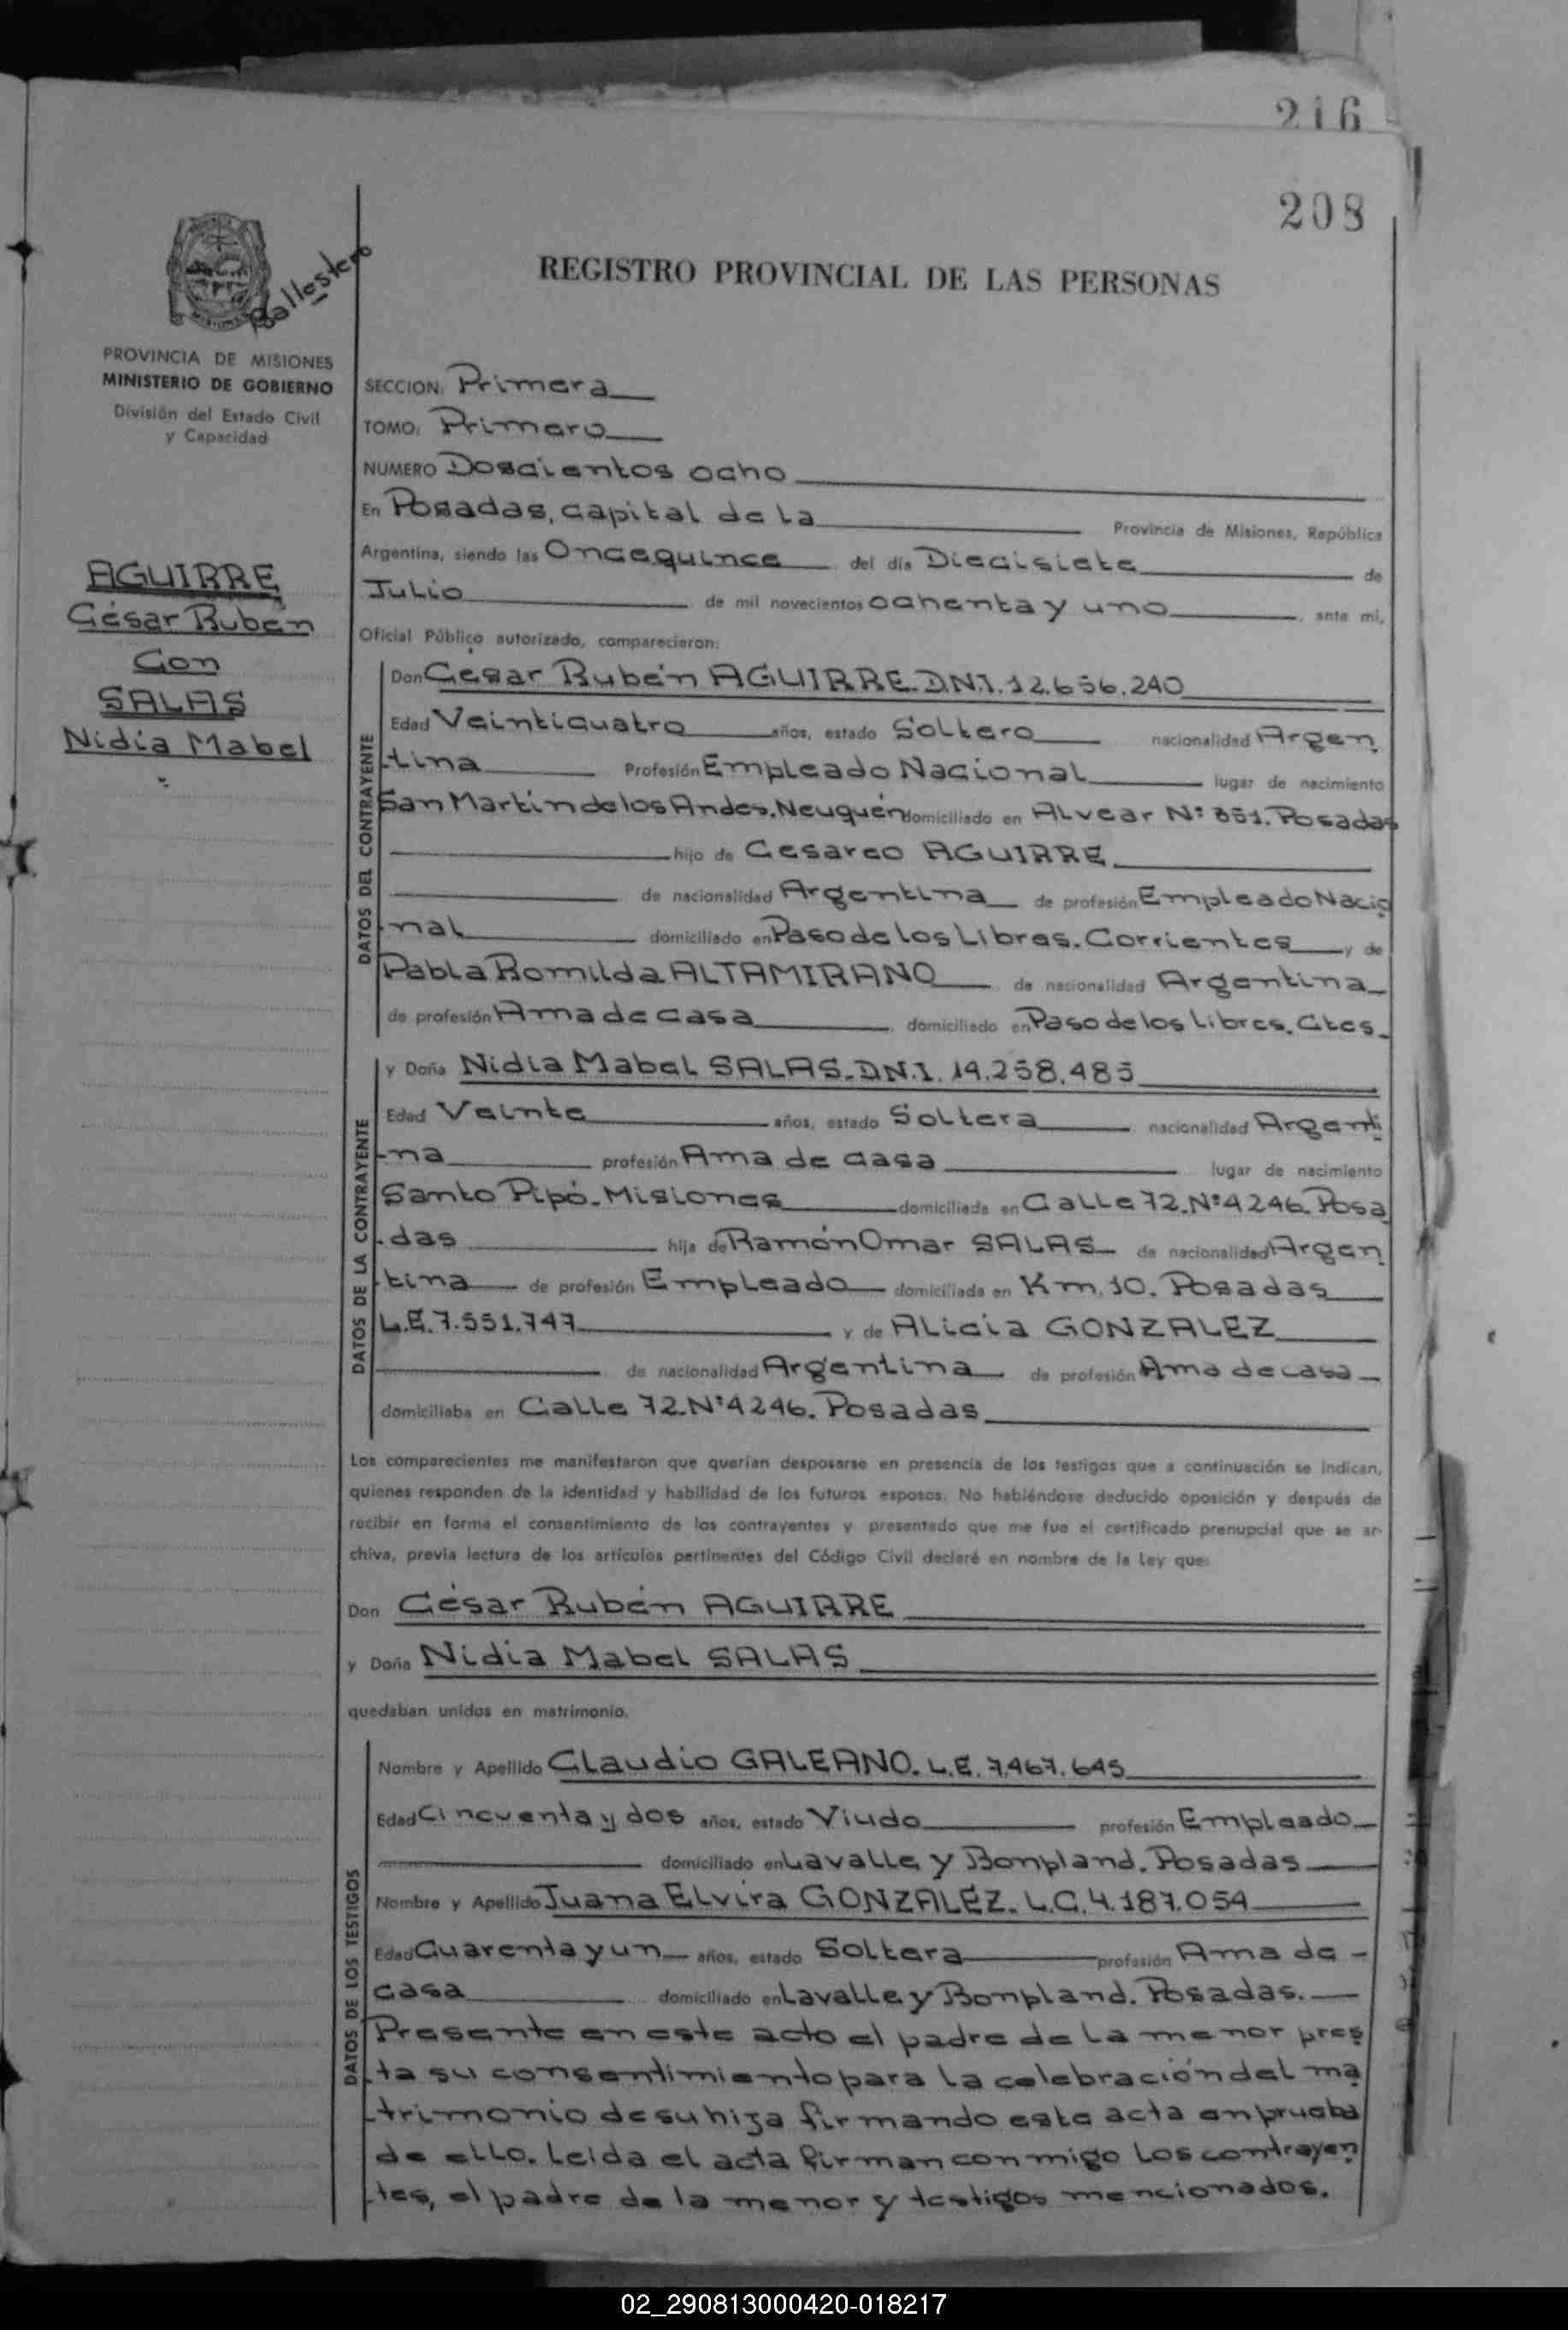 216
208
Ballestero
MISIONES
PROVINCIA DE MISIONES
MINISTERIO DE GOBIERNO
División del Estado Civil
y Capacidad
AGUIRRE
César Rubén
Con
SALAS
Nidia Mabel
REGISTRO PROVINCIAL DE LAS PERSONAS
SECCION: Primera
TOMO: Primero
NUMERO Doscientos ocho
En Posadas, capital de la Provincia de Misiones, República
Argentina, siendo las Oncequince del día Diecisiete de
Julio de mil novecientos ochenta y uno, ante mi,
Oficial Público autorizado, comparecieron:
DATOS DEL CONTRAYENTE
Don César Rubén AGUIRRE. D.N.I. 12.656.240
Edad Veinticuatro años, estado Soltero nacionalidad Argen
tina Profesión Empleado Nacional lugar de nacimiento
San Martín de los Andes. Neuquén domiciliado en Alvear N° 851. Posadas
hijo de Cesareo AGUIRRE
de nacionalidad Argentina de profesión Empleado Nacio
nal domiciliado en Paso de los Libres. Corrientes y de
Pabla Romilda ALTAMIRANO de nacionalidad Argentina
de profesión Ama de casa, domiciliado en Paso de los Libres. Ctes.
DATOS DE LA CONTRAYENTE
y Doña Nidia Mabel SALAS. D.N.I. 14.258.485
Edad Veinte años, estado Soltera nacionalidad Argenti
na profesión Ama de casa lugar de nacimiento
Santo Pipó. Misiones domiciliada en Calle 72. N° 4246. Posa
das hija de Ramón Omar SALAS de nacionalidad Argen
tina de profesión Empleado domiciliada en Km. 10. Posadas
L.E. 7.551.747 y de Alicia GONZALEZ
de nacionalidad Argentina de profesión Ama de casa
domiciliaba en Calle 72. N° 4246. Posadas
Los comparecientes me manifestaron que querían desposarse en presencia de los testigos que a continuación se indican,
quienes responden de la identidad y habilidad de los futuros esposos. No habiéndose deducido oposición y después de
recibir en forma el consentimiento de los contrayentes y presentado que me fue el certificado prenupcial que se ar-
chiva, previa lectura de los artículos pertinentes del Código Civil declaré en nombre de la Ley que:
Don César Rubén AGUIRRE
y Doña Nidia Mabel SALAS
quedaban unidos en matrimonio.
DATOS DE LOS TESTIGOS
Nombre y Apellido Claudio GALEANO. L.E. 7.467.645
Edad Cincuenta y dos años, estado Viudo profesión Empleado
domiciliado en Lavalle y Bonpland. Posadas
Nombre y Apellido Juana Elvira GONZALEZ. L.C. 4.187.054
Edad Cuarenta y un años, estado Soltera profesión Ama de -
casa domiciliado en Lavalle y Bonpland. Posadas.
Presente en este acto el padre de la menor pres
ta su consentimiento para la celebración del ma
trimonio de su hija firmando esta acta en prueba
de ello. Leida el acta firman conmigo los contrayen
tes, el padre de la menor y testigos mencionados.
02_290813000420-018217